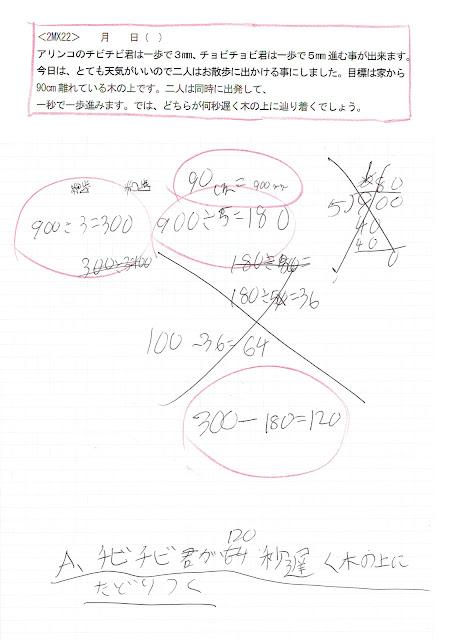 <2MX22>　　月　　日（　）
アリンコのチビチビ君は一歩で３mm、チョビチョビ君は一歩で５mm進む事が出来ます。
今日は、とても天気がいいので二人はお散歩に出かける事にしました。目標は家から
90cm離れている木の上です。二人は同時に出発して、
一秒で一歩進みます。では、どちらが何秒遅く木の上に辿り着くでしょう。
90cm=900mm
900÷3=300
900÷5=180
300÷3=100
180÷5=36
100-36=64
300-180=120
5)900
40
40
0
120
A、チビチビ君が64秒遅く木の上に
たどりつく